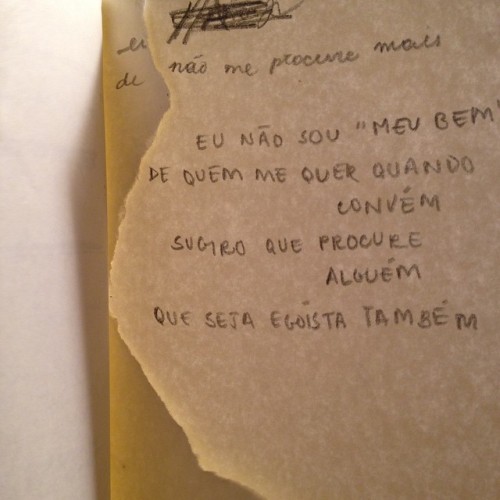 eu
de não me procure mais
EU NÃO SOU "MEU BEM"
DE QUEM ME QUER QUANDO
CONVÉM
SUGIRO QUE PROCURE
ALGUÉM
QUE SEJA EGOÍSTA TAMBÉM